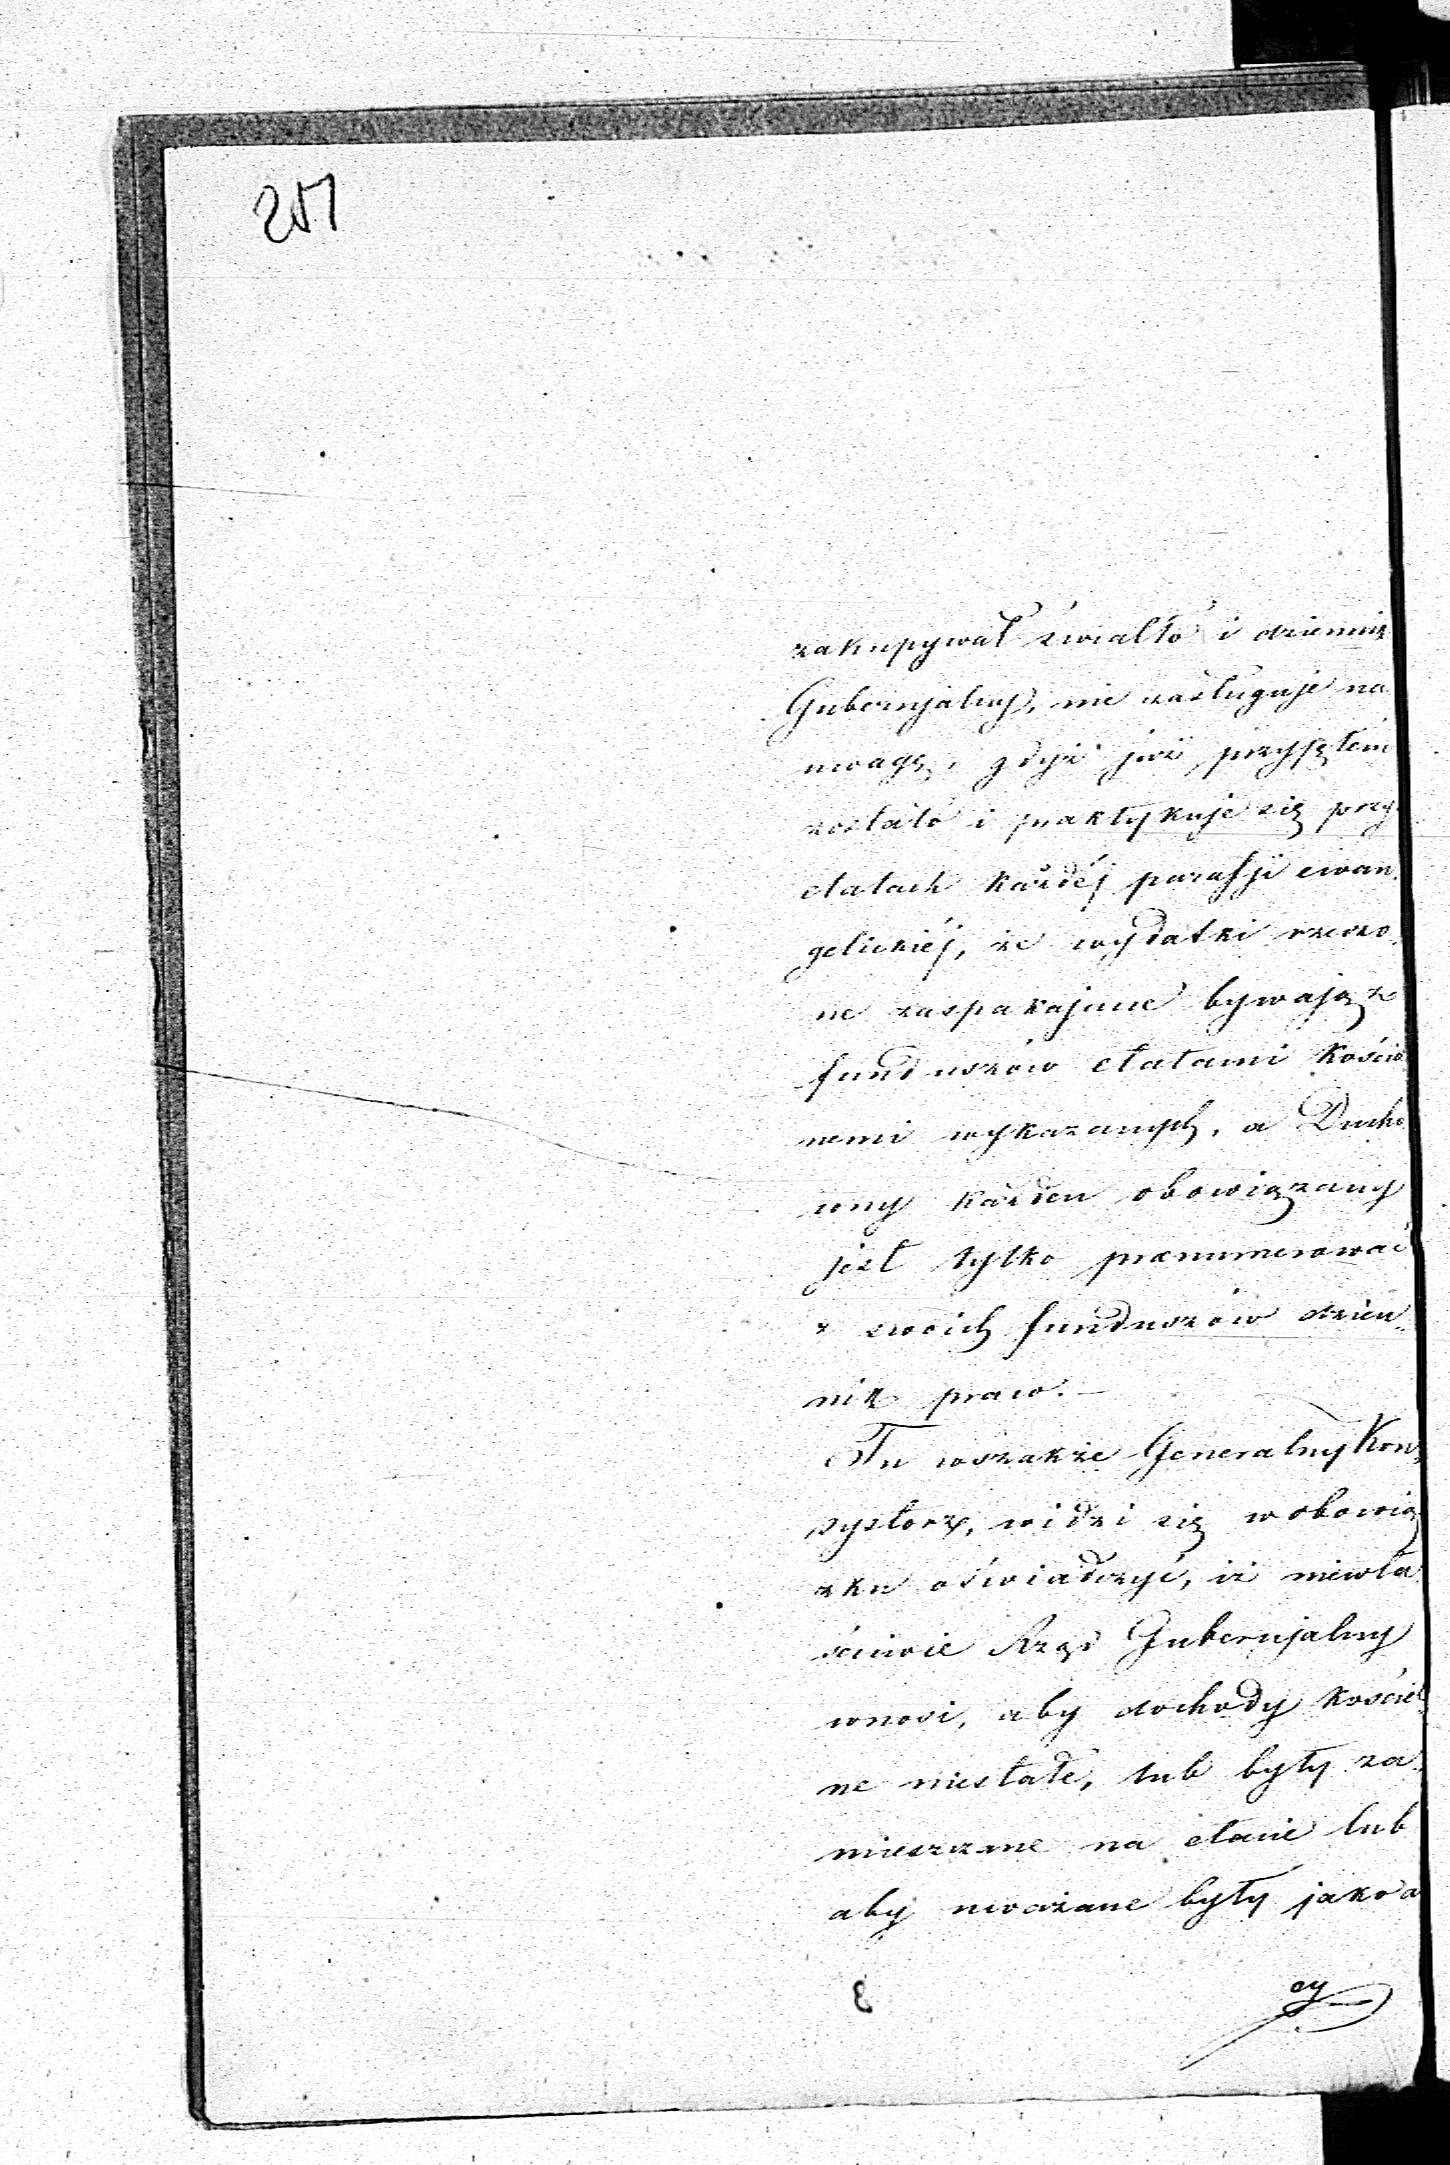 257
zakupywał światło i dziennik
Gubernjalny, nie zasługuje na
uwagę, gdyż już przyjętém
zostało i praktykuje się przy
etatach każdéj parafji ewan„
gelickiéj, że wydatki rzeczo„
ne zaspakajane bywają z
funduszów etatami kościel
nemi wykazanych, a Ducho
wny każden obowiązany
jest tylko prenumerować
z swoich funduszów dzien„
nik praw.—
Tu wszakże Generalny Kon„
systorz, widzi się w obowią
zku oświadczyć, iż niewła
ściwie Rząd Gubernjalny
wnosi, aby dochody kościel„
ne niestałe, lub były za„
mieszczone na etacie lub
aby uważane były jako a
cy